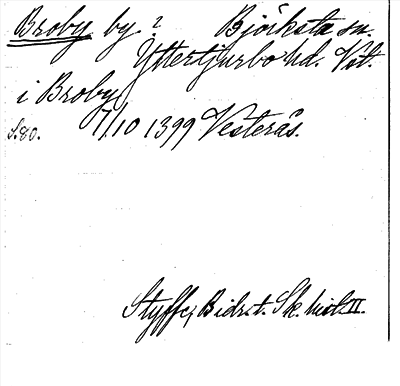 Broby by? Björksta sn.
Yttertjurbo hd. Vstm.
i Broby
S. 80. 7/10 1399 Vesterås.
Styffe, Bidr. t. Sk. hist. II.